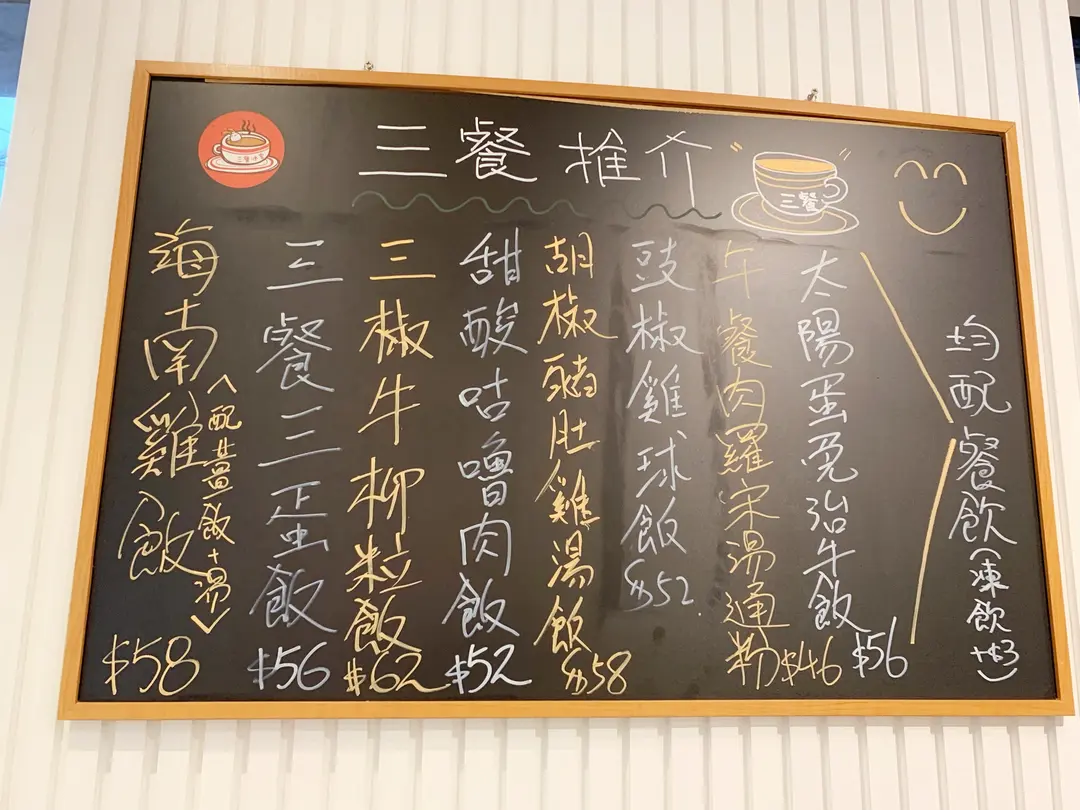 三餐推介
三餐
海南雞飯 $58
<配薑飯+湯>
三餐三蛋飯 $56
三椒牛柳粒飯 $62
甜酸咕嚕肉飯 $52
胡椒豬肚雞湯飯 $58
豉椒雞球飯 $52
午餐肉羅宋湯通粉 $46
太陽蛋免治牛飯 $56
均配餐飲(凍飲+$3)